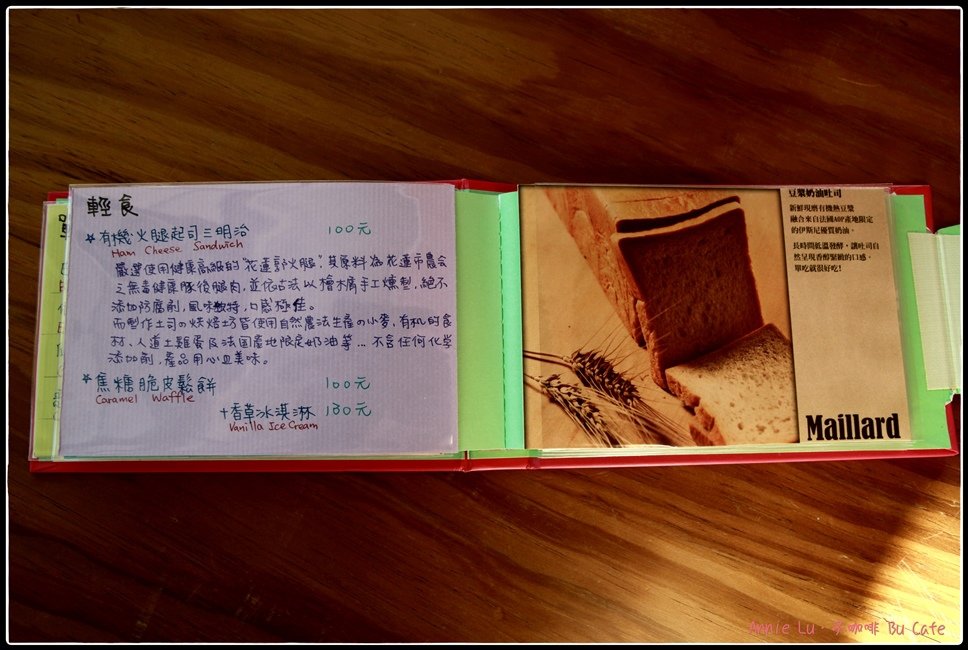 輕食
*有機火腿起司三明治 100元
Ham Cheese Sandwich
嚴選使用健康高級的"花蓮享火腿",其原料為花蓮市農會
之無毒健康豚後腿肉,並依古法以檜木屑手工燻製,絕不
添加防腐劑,風味獨特,口感極佳。
而製作土司の烘焙坊皆使用自然農法生產の小麥,有机的食
材、人道土雞蛋及法国產地限定奶油等... 不含任何化学
添加劑,產品用心且美味。
*焦糖脆皮鬆餅 100元
Caramel Waffle
+香草冰淇淋 130元
Vanilla Ice Cream
豆漿奶油吐司
新鮮現磨有機熱豆漿
融合來自法國AOP產地限定
的伊斯尼優質奶油。
長時間低溫發酵,讓吐司自
然呈現香醇緊緻的口感,
單吃就很好吃!
Maillard
Annie Lu. 咖啡 Bu Cafe